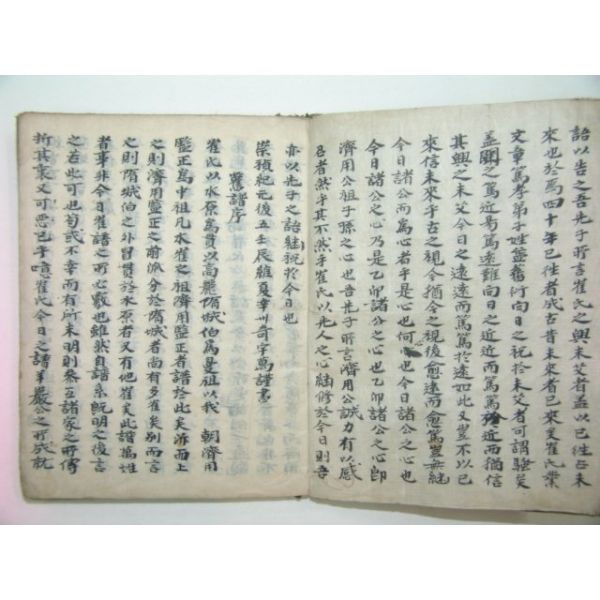 語以告之吾先子所言崔氏之興未艾者盖以已往占未
來也於焉四十年已往者咸古昔未來者已來矣崔氏業
文章篤孝弟子姓蕃衍向日之祝於未艾者可謂驗矣
盖聞之篤近易篤遠難向日之近近而篤篤於近而猶信
其興之未艾今日之遠遠而篤篤於遠如此又豈不以已
來信未來乎古之視今猶今之視後愈遠而愈篤豈無繼
今日諸公而爲心者乎是心也何心也今日諸公之心也
今日諸公之心乃是乙卯諸公之心也乙卯諸公之心卽
濟用公祖子孫之心也吾先子所言濟用公誠力有以感
召者然乎其不然乎崔氏以先人之心繼修於今日則吾
亦以先子之語繼祝於今日也
崇禎紀元後五壬辰維夏辛卯奇宇萬謹書
舊譜序
崔氏以水原爲貫以高麗隋城伯爲曼祖以我 朝濟用
監正爲中祖凡水崔之祖濟用監正者譜於此矣泝而上
之則濟用監正之前派分於隋城者尚有多崔矣別而言
之則隋城伯之外冒貫於水原者又有他崔矣此譜爲性
者事非今日崔譜之所心數也雖然自譜系旣明之後言
之若此可也苟或不幸而有所未明則叅互諸家之所傳
折其衷又可惡已乎噫崔氏今日之譜筆嚴公之所成就